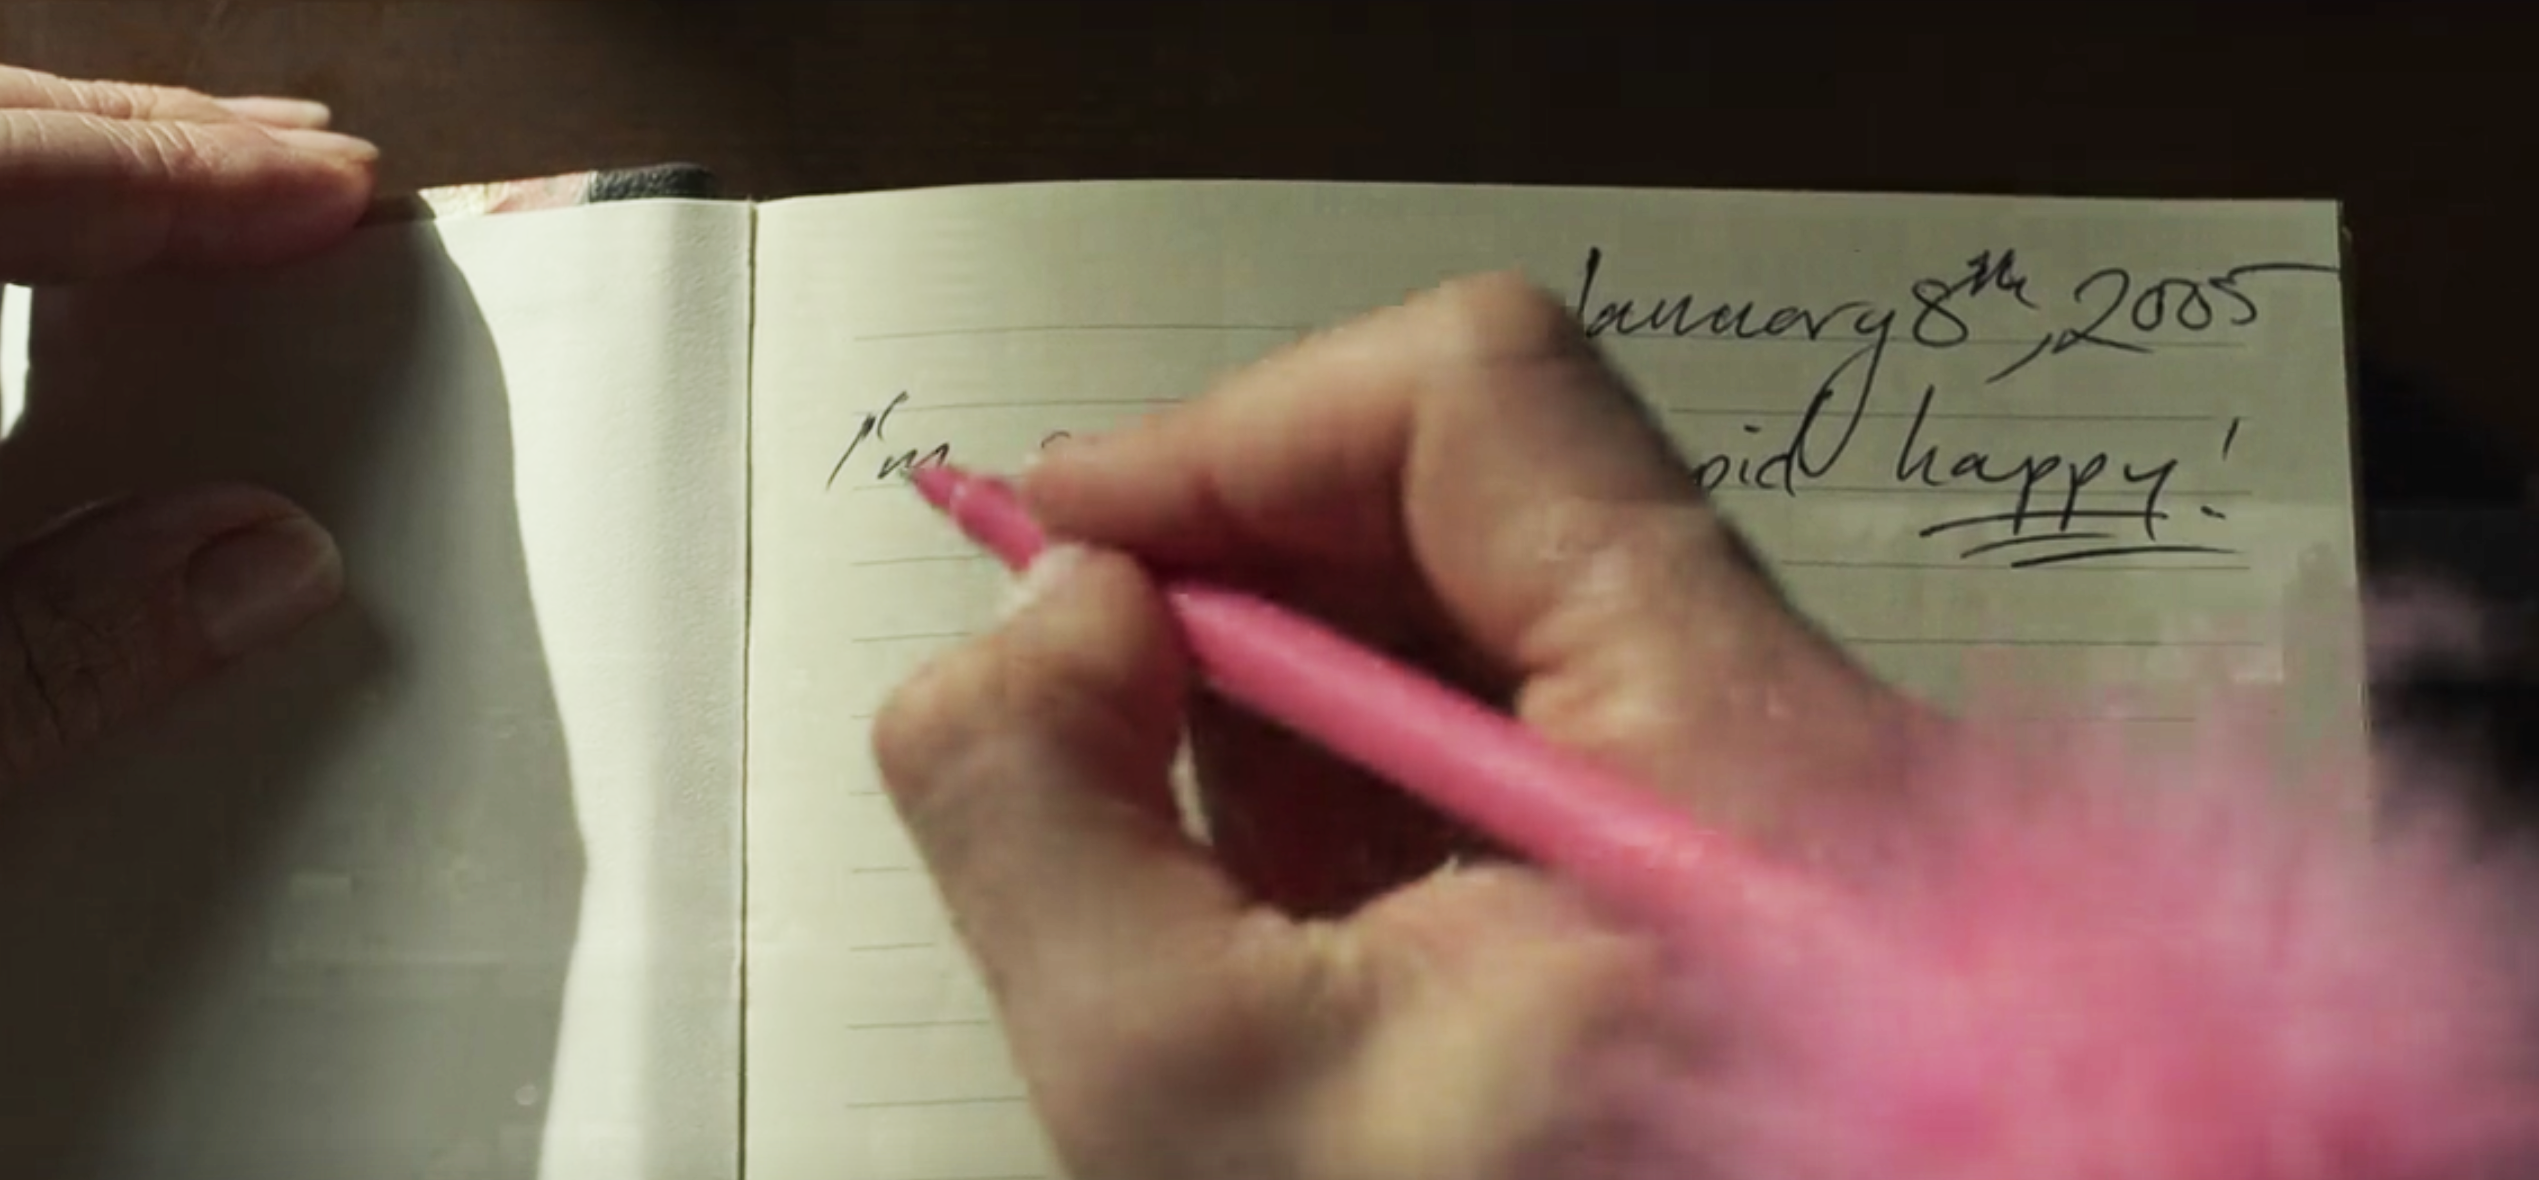 January 8th, 2005
I'm happy!